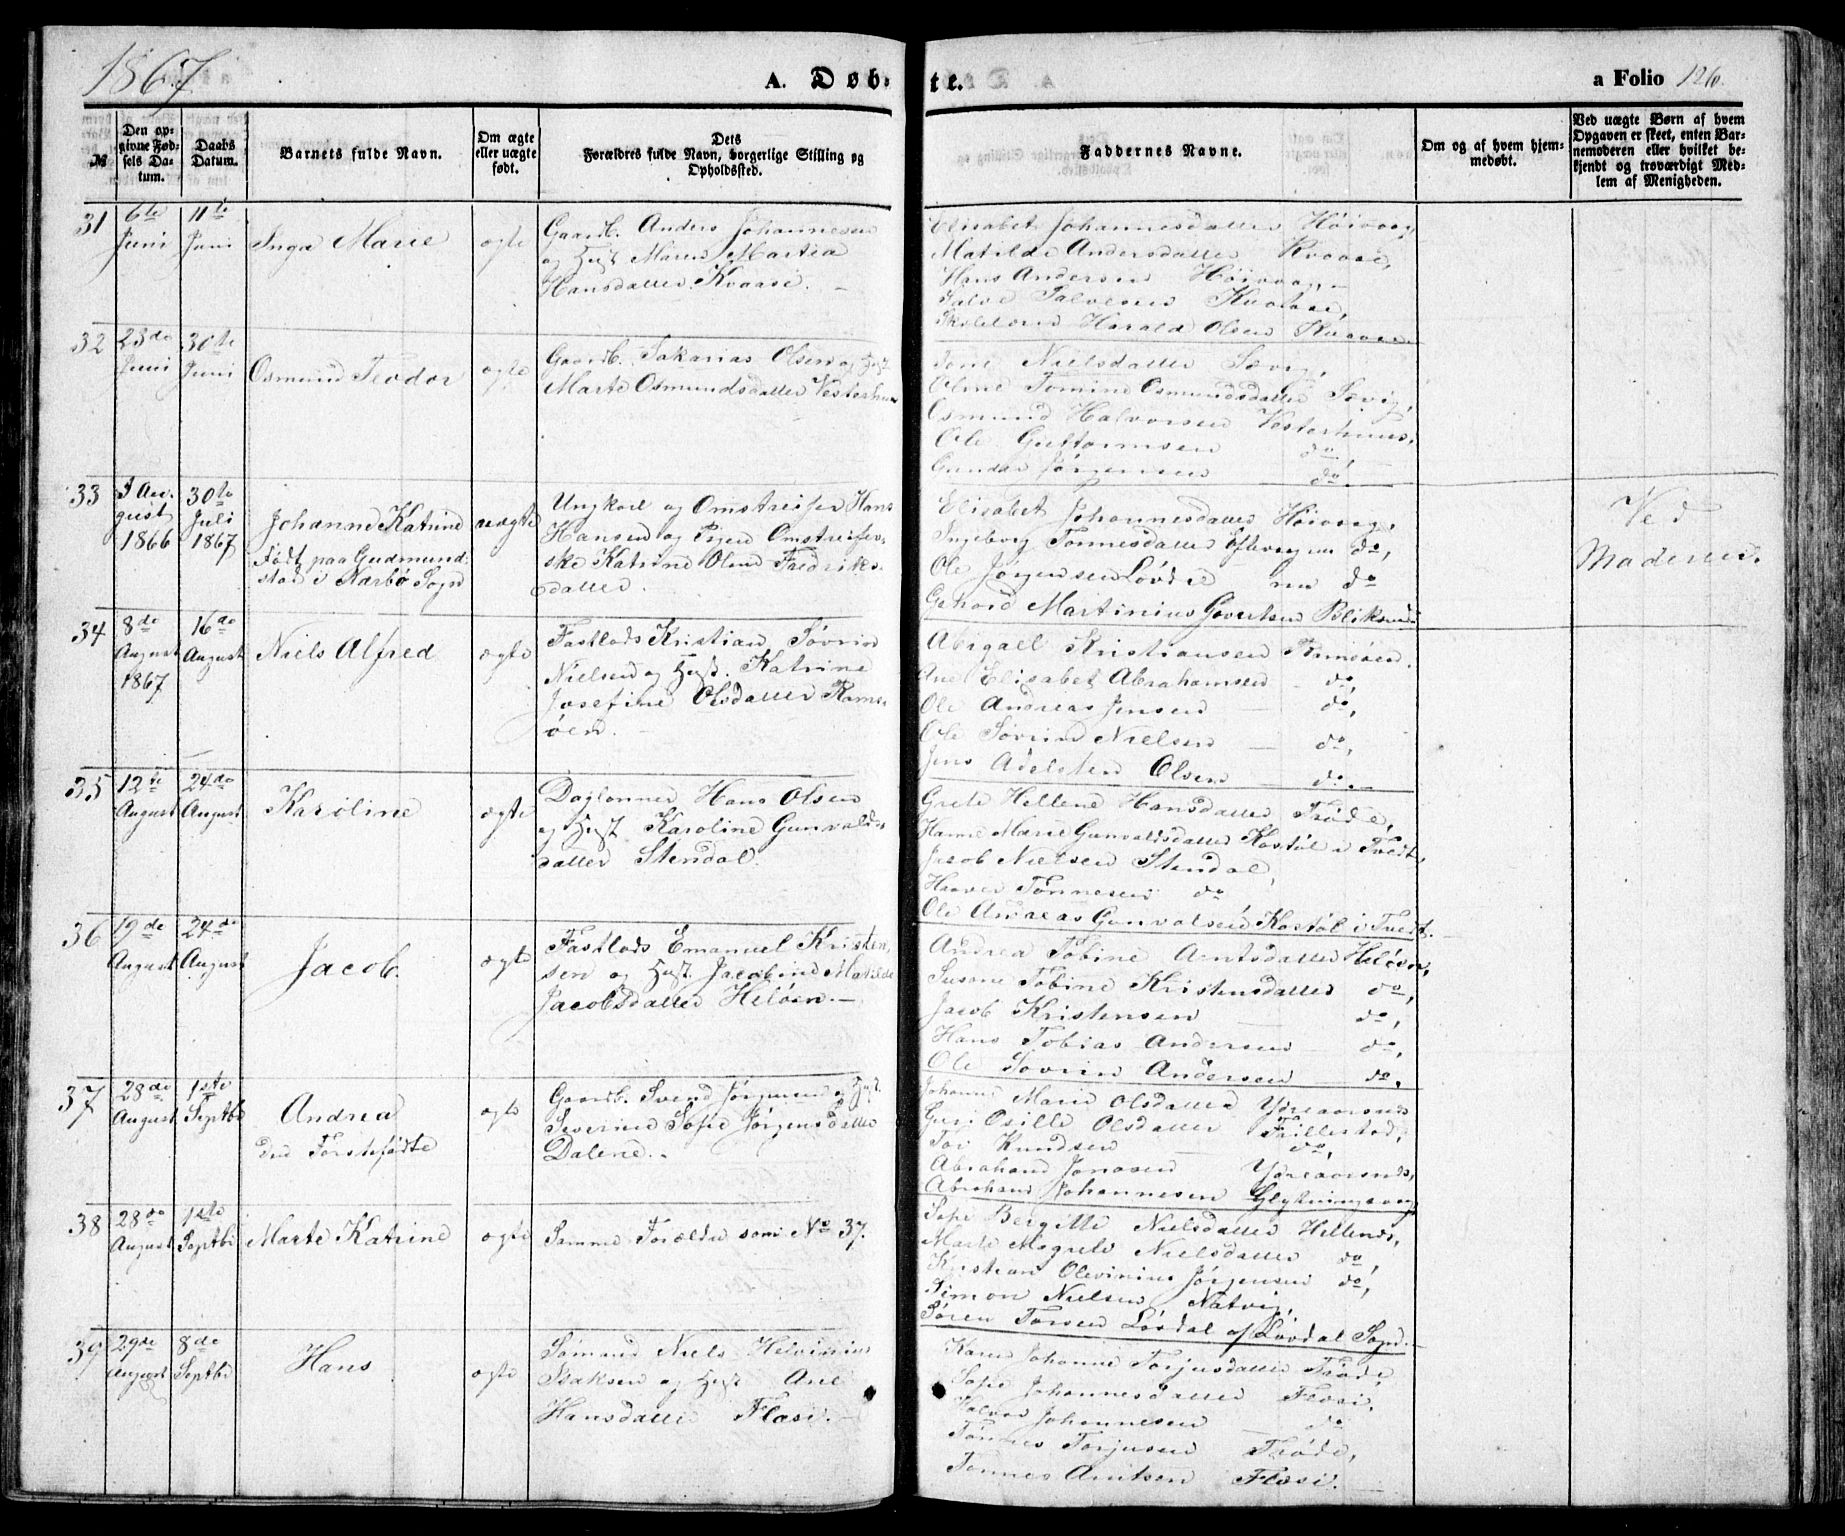 1867
A. Døb-
te.
a Folio 126.
№
Den op-
givne Fød-
sels Da-
tum.
Daabs
Datum.
Barnets fulde Navn.
Om ægte
eller uægte
født.
Dets
Forældres fulde Navn, borgerlige Stilling og
Opholdssted.
Faddernes Navne.
Om og af hvem hjem-
medøbt.
Ved uægte Børn af hvem
Opgaven er skeet, enten Bar-
nemoderen eller hvilket be-
kjendt og troværdigt Med-
lem af Menigheden.
31
6te
Juni
11te
Juni
Inga Marie
ægte
Gaardb. Anders Johannesen
og Hust. Maren Martea
Hansdatter Kvaase. –
Elisabet Johannesdatter Høivaag
Matilde Andersdatter Kvaase,
Hans Andersen Høivaag, –
Salve Salvesen Kvaase,
Skolelærer Harald Olsen Kvaase.
32
23de
Juni
30te
Juni
Osmund Teodor
ægte
Gaardb. Sakarias Olsen og Hust
Marte Osmundsdatter Vesterhuus
Nielsdatter Sævig,
Oline Tomine Osmundsdatter Sævig,
Osmund Halvorsen Vesterhuus,
Ole Guttormsen do,
Gunder Jørgensen do. –
33
Au-
gust
1866
30te
Juli
1867
Johanne Katrine
født paa Gudmund-
stad i Narbø Sogn
uægte
Ungkarl og Omstreifer Hans
Hansen og Pigen Omstreifer-
ske Katrine Oline Fredriks-
datter.
Elisabet Johannesdatter Høivaag,
Ingeborg Tønnesdatter do,
Ole Jørgensen do
Gehard Martinius Govertsen Bliksund
Ved
Moderen.
34
8de
August
1867
16de
August
Niels Alfred
ægte
Fastlods Kristian Søvrin
Nielsen og Hust. Katrine
Josefine Olsdatter Rams-
øen.
Abigall Kristiansen Ramsøen.
Ane Elisabet Abrahamsen – do,
Ole Andreas Jensen – do,
Ole Søvrin Nielsen – do,
Jens Adelsten Olsen – do. –
35
12te
August
24de
August
Karoline
ægte
Daglønner Hans Olsen
og Hust Karoline Gunvalds-
datter Stendal.
Grete Hellene Hansdatter Trøde,
Hanne Marie Gunvaldsdatter Kostøl i Tvedt,
Jacob Nielsen Stendal,
Haaver Tønnesen do
Ole Andreas Gunvalsen Kostøl i Tvedt. –
36
19de
August
24de
August
Jacob.
ægte
Fastlods Emanuel Kristen-
sen og Hust. Jacobine Matilde
Jacobsdatter Heløen. –
Andrea Tobine Arntsdatter Heløen,
Susane Tobine Kristensdatter do,
Jacob Kristensen do,
Hans Tobias Andersen – do,
Ole Søvrin Andersen – do,
37
28de
August
1ste
Septbr
Andrea
den Førstefødte
ægte
Gaardb. Svend Jørgensen og Hust.
Severine Sofie Jørgensdatter
Dalene. –
Johanne Marie Olsdatter Ydreaarsnes
Guri Osille Olsdatter Trillestad,
Tor Knudsen – do,
Abraham Jonasen Ydreaarsnes,
Abraham Johannesen
38
28de
August
1ste
Septbr
Marte Katrine
ægte
Samme Forældre som No 37.
Sofie Bergitte Nielsdatter Hellenes,
Marte Magrete Nielsdatter do,
Kristian Olevinius Jørgensen do,
Simon Nielsen Natvig,
Søren Torsen Løvdal af Løvdal Sogn. –
39
29de
August
8de
Septbr
Hans
ægte
Sømand Niels Helvinius
Isaksen og Hust Ane
Hansdatter Flæsi. –
Karen Johanne Torjusdatter Trøde,
Sofie Johannesdatter Flæsi,
Halvor Johannesen do
Tønnes Torjusen Trøde,
Tønnes Arntsen Flæsi.